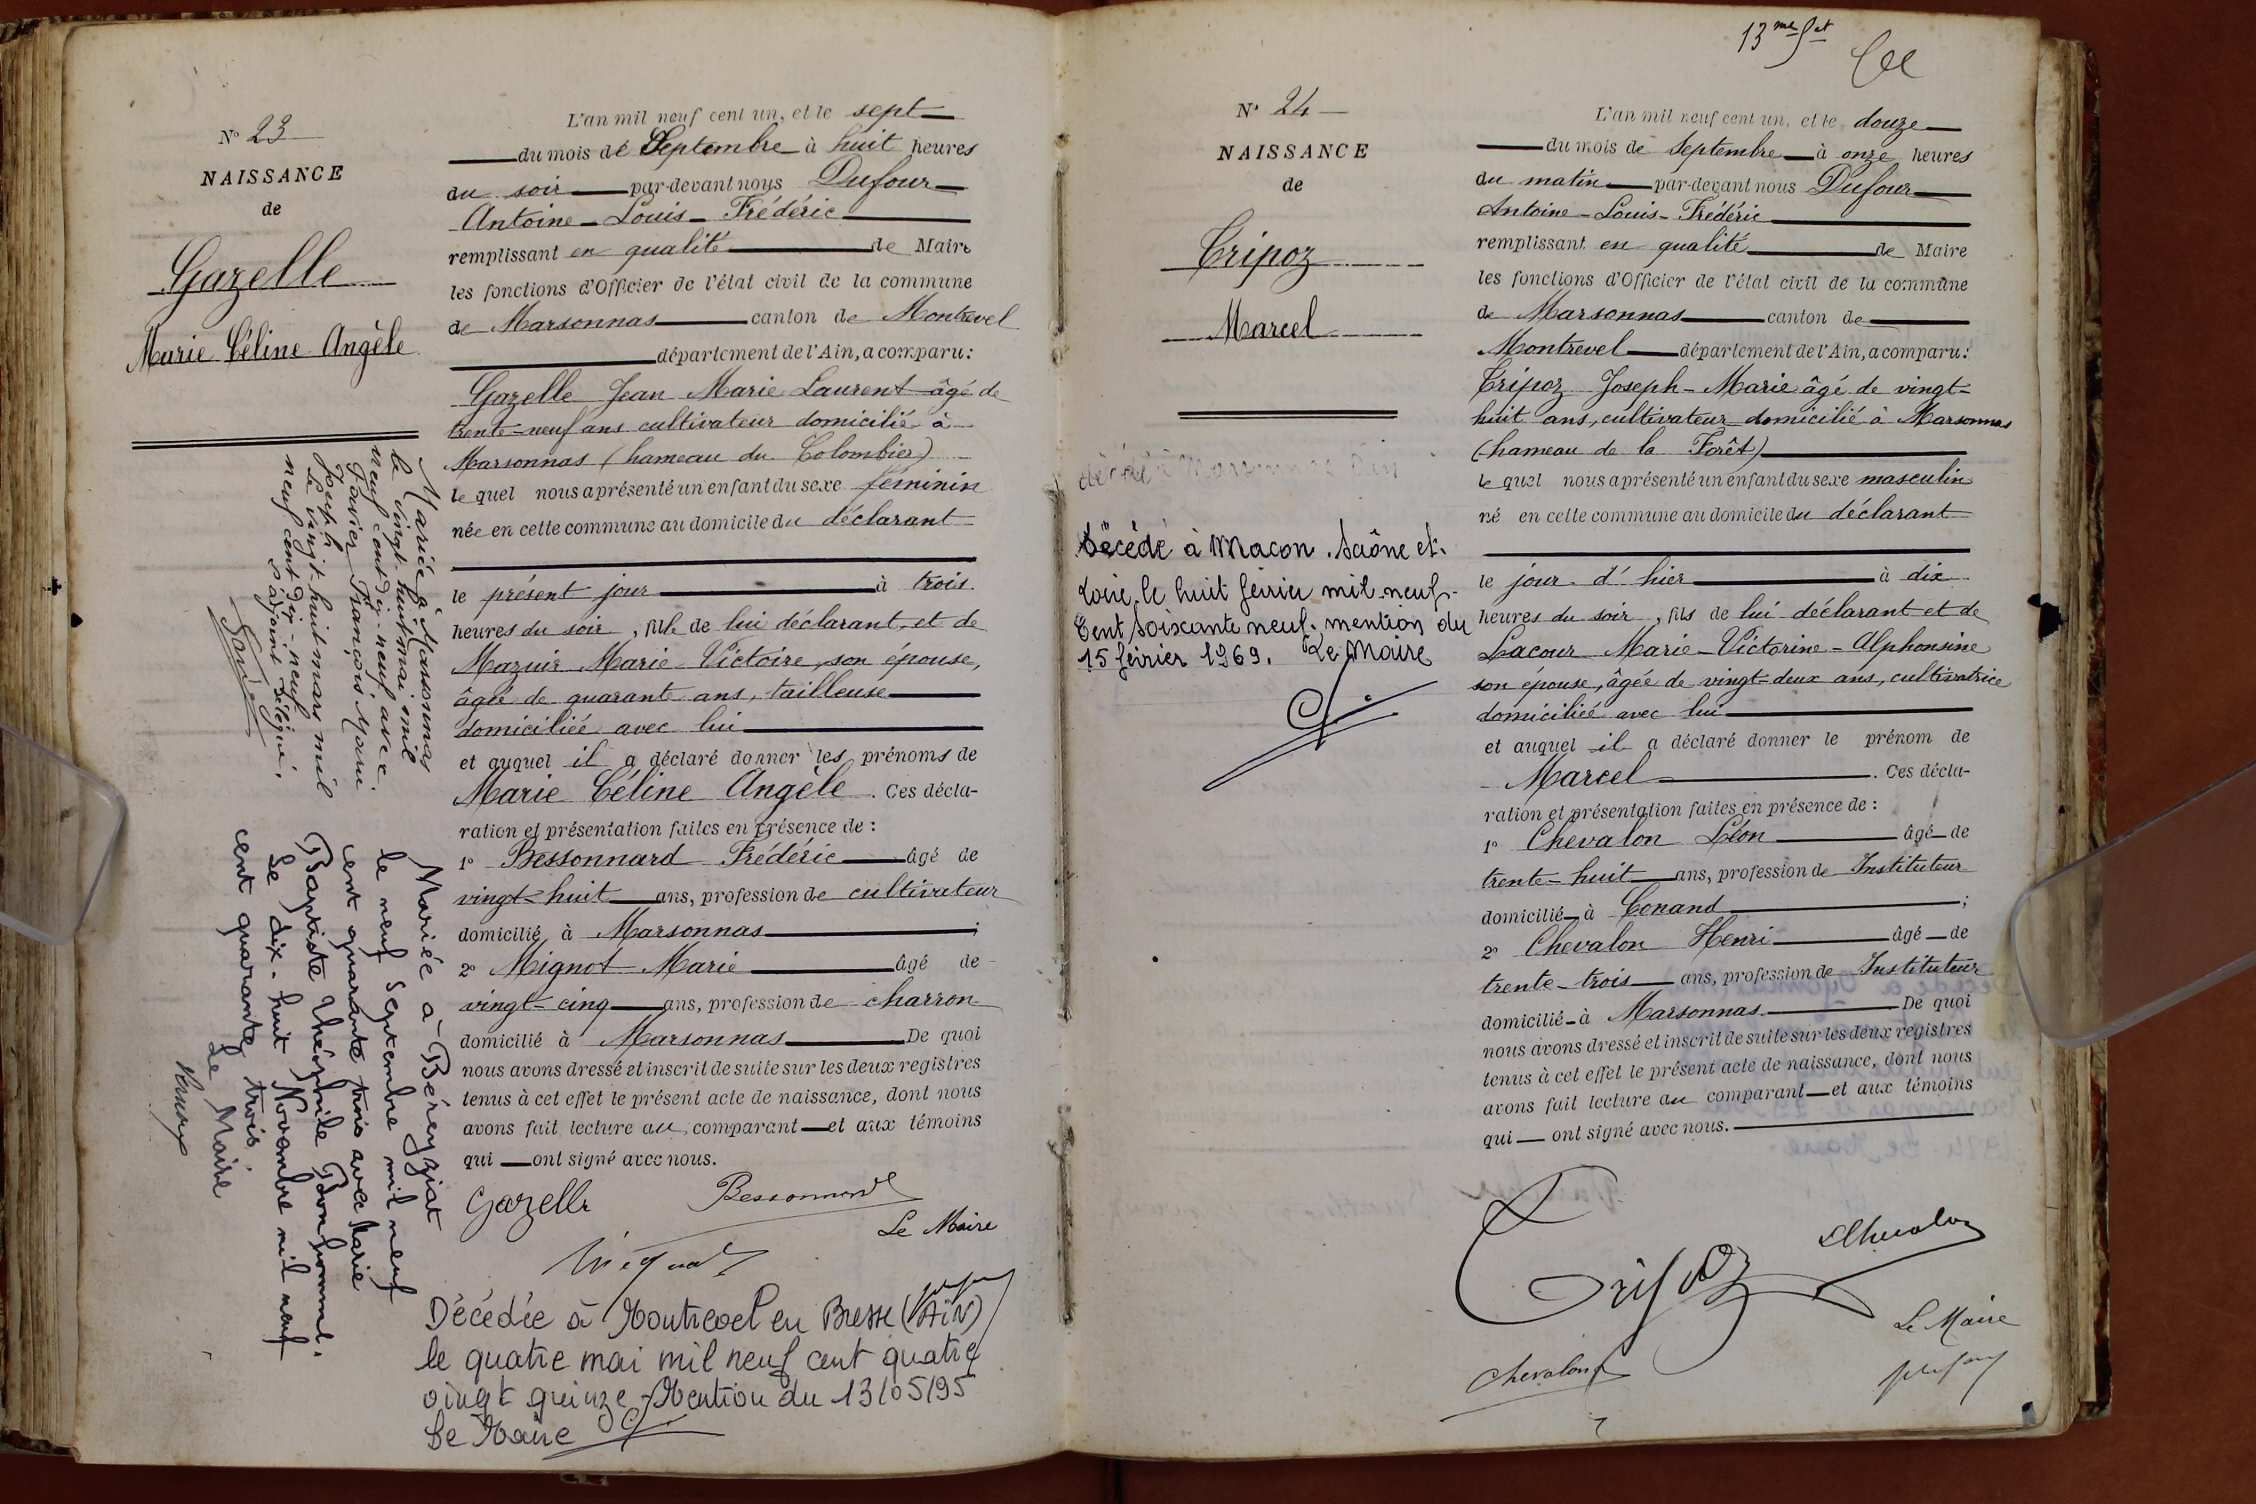 N° 23
NAISSANCE
de
Gazelle
Marie Céline Angèle
L'an mil neuf cent un, et le sept
du mois de Septembre à huit heures
du soir par-devant nous Dufour
Antoine - Louis - Frédéric
remplissant en qualité de Maire
les fonctions d'Officier de l'état civil de la commune
de Marsonnas canton de Montrevel
département de l'Ain, a comparu :
Gazelle Jean Marie Laurent âgé de
trente-neuf ans cultivateur domicilié à
Marsonnas (hameau du Colombier)
lequel nous a présenté un enfant du sexe féminin
née en cette commune au domicile du déclarant
le présent jour à trois
heures du soir, fille de lui déclarant et de
Mazuir Marie Victoire, son épouse,
âgée de quarante ans, tailleuse
domiciliée avec lui
et auquel il a déclaré donner les prénoms de
Marie Céline Angèle. Ces décla-
ration et présentation faites en présence de :
1° Bessonnard Frédéric âgé de
vingt-huit ans, profession de cultivateur
domicilié à Marsonnas ;
2° Mignot Marie âgé de
vingt-cinq ans, profession de charron
domicilié à Marsonnas De quoi
nous avons dressé et inscrit de suite sur les deux registres
tenus à cet effet le présent acte de naissance, dont nous
avons fait lecture au comparant et aux témoins
qui ont signé avec nous.
Gazelle Bessonnard
Le Maire
Mariée à Marsonnas
le vingt huit mai mil
neuf cent dix-neuf avec
Favier François Marie
Joseph
Le vingt huit mars mil
neuf cent dix-neuf
L'adjoint délégué,
Mariée à Béreyziat
le neuf Septembre mil neuf
cent quarante trois avec Marie
Baptiste Théophile Bonhomme.
Le dix-huit Novembre mil neuf
cent quarante trois.
Le Maire
Décédée à Montrevel en Bresse (AIN)
le quatre mai mil neuf cent quatre
vingt quinze - Mention du 13/05/95
Le Maire
13me
N° 24
NAISSANCE
de
Tripoz
Marcel
L'an mil neuf cent un, et le douze
du mois de Septembre à onze heures
du matin par-devant nous Dufour
Antoine - Louis - Frédéric
remplissant en qualité de Maire
les fonctions d'Officier de l'état civil de la commune
de Marsonnas canton de
Montrevel département de l'Ain, a comparu :
Tripoz Joseph-Marie âgé de vingt-
huit ans, cultivateur domicilié à Marsonnas
(hameau de la Forêt)
lequel nous a présenté un enfant du sexe masculin
né en cette commune au domicile du déclarant
le jour d'hier à dix
heures du soir, fils de lui déclarant et de
Lacour Marie-Victorine-Alphonsine
son épouse, âgée de vingt-deux ans, cultivatrice
domiciliée avec lui
et auquel il a déclaré donner le prénom de
Marcel. Ces décla-
ration et présentation faites en présence de :
1° Chevalon Léon âgé de
trente-huit ans, profession de Instituteur
domicilié à Conand ;
2° Chevalon Henri âgé de
trente-trois ans, profession de Instituteur
domicilié à Marsonnas De quoi
nous avons dressé et inscrit de suite sur les deux registres
tenus à cet effet le présent acte de naissance, dont nous
avons fait lecture au comparant et aux témoins
qui ont signé avec nous.
Tripoz Chevalon
Le Maire
Chevalon
Décédé à Macon. Saône et.
Loire, le huit février mil neuf.
Cent soixante neuf. mention du
15 février 1969. Le Maire